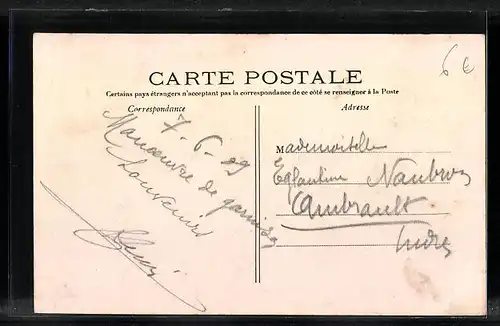 6 €
CARTE POSTALE
Certains pays étrangers n'acceptant pas la correspondance de ce côté se renseigner à la Poste
Correspondance
Adresse
7-6-09
Manœuvre de
Souvenirs
Mademoiselle
Eglantine
Ambrault
Indre